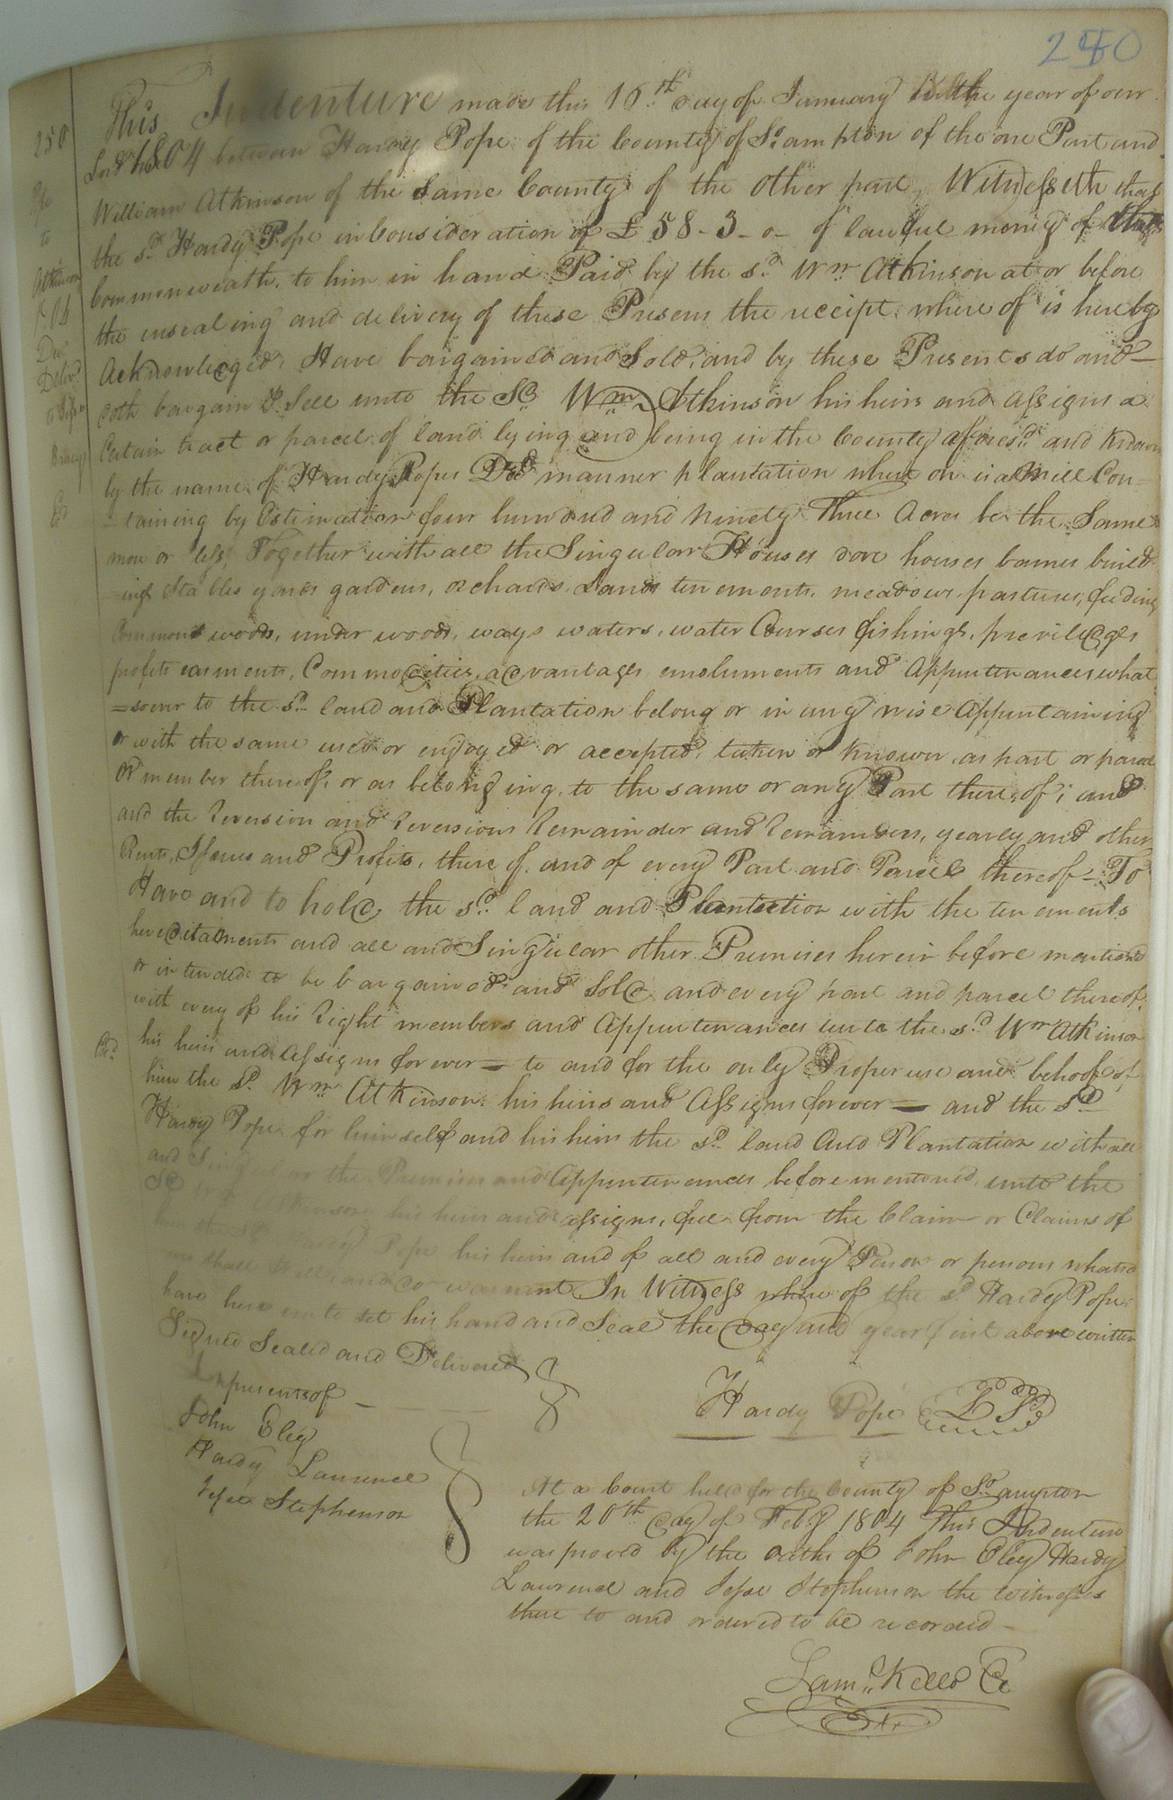 240
250
Pope
to
Atkinson
Deed
Deliv.d
This Indenture made this 16.th day of January in the year of our
Lord 1804 between Hardy Pope of the County of So.ampton of the one Part and
William Atkinson of the Same County of the other part, Witnesseth that
the s.d Hardy Pope in Consideration of £58-3-0- of lawful money of this
Commonwealth, to him in hand Paid by the s.d Wm Atkinson at or before
the ensealing and delivery of these Presents the receipt where of is hereby
Acknowledged, Have bargained and Sold, and by these Presents do and
doth bargain & Sell unto the Sd. Wm Atkinson his heirs and assigns a
Certain tract or parcel of land lying and being in the County afores.d and Known
by the name of Hardy Popes manner plantation where on is a Mill Con=
=taining by Estimation four hundred and Ninety Three Acres be the Same
more or less, Together with all the Singular Houses dove houses barnes build=
=ings Stables yards gardens, orchards Lands tenements, meadows pastures, feeding
Commons woods, under woods, ways waters, water Courses fishings, previledges
profits easments, Commodities, advantages emoluments and Appurtenances what
=soever to the s.d land and Plantation belong or in any wise Appertaining
or with the same used or enjoyed or accepted, taken or known as part or parcel
or member thereof, or as belonging to the same or any Part there,of; and
and the reversion and reversions remainder and remainders, yearly and other
Rents, Issues and Profits, there of, and of every Part and Parcel thereof - To
Have and to hold, the s.d land and Plantation with the tenements
hereditaments and all and Singular other Premises herein before mentioned
or intended to be bargained and Sold, and every part and parcel thereof,
with every of his right members and Appurtenances unto the s.d Wm Atkinson
his heirs and Assigns forever = to and for the only Proper use and behoof of
him the s.d Wm Atkinson his heirs and Assigns forever = and the s.d
Hardy Pope for himself and his heirs the s.d land and Plantation with all
and Singular the Premises and Appurtenances before mentioned unto the
Sd Wm Atkinson his heirs and assigns, free from the Claim or Claims of
Hardy Pope his heirs and of all and every Person or persons whatso
shall Will and do warrant In Witness where of the s.d Hardy Pope
have here unto set his hand and Seal the day and year first above written
Signed Sealed and Delivered
In presents of
John Eley
Hardy Laurence
Jesse Stephenson
Hardy Pope
At a Court held for the County of So.ampton
the 20th day of Feby 1804 This Indenture
was proved by the oaths of John Eley Hardy
Laurence and Jesse Stephenson the witnesses
there to and ordered to be recorded -
Sam.l Kello Cl